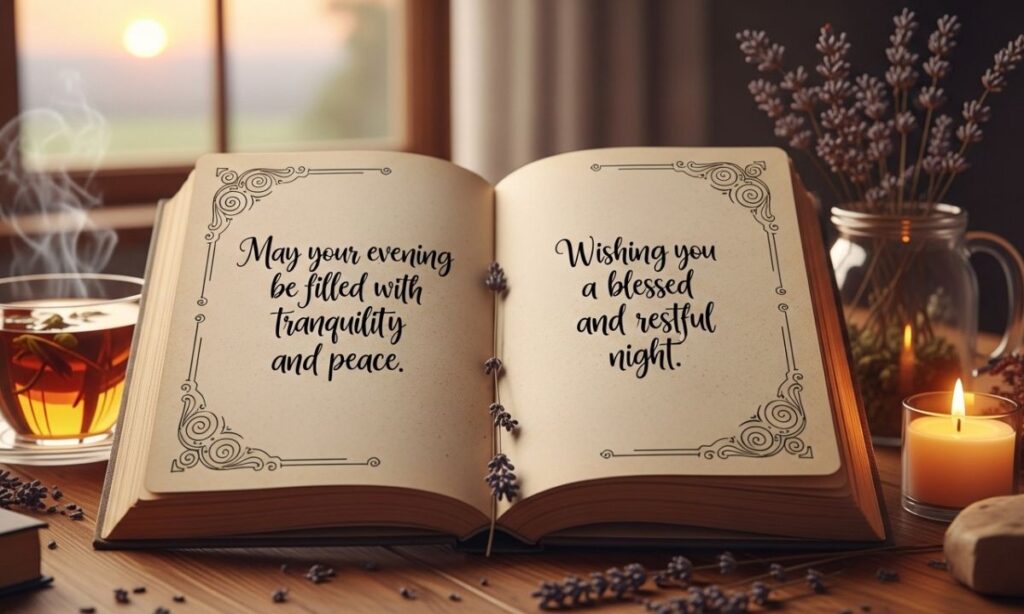 May your evening
be filled with
tranquility
and peace.
Wishing you
a blessed
and restful
night.